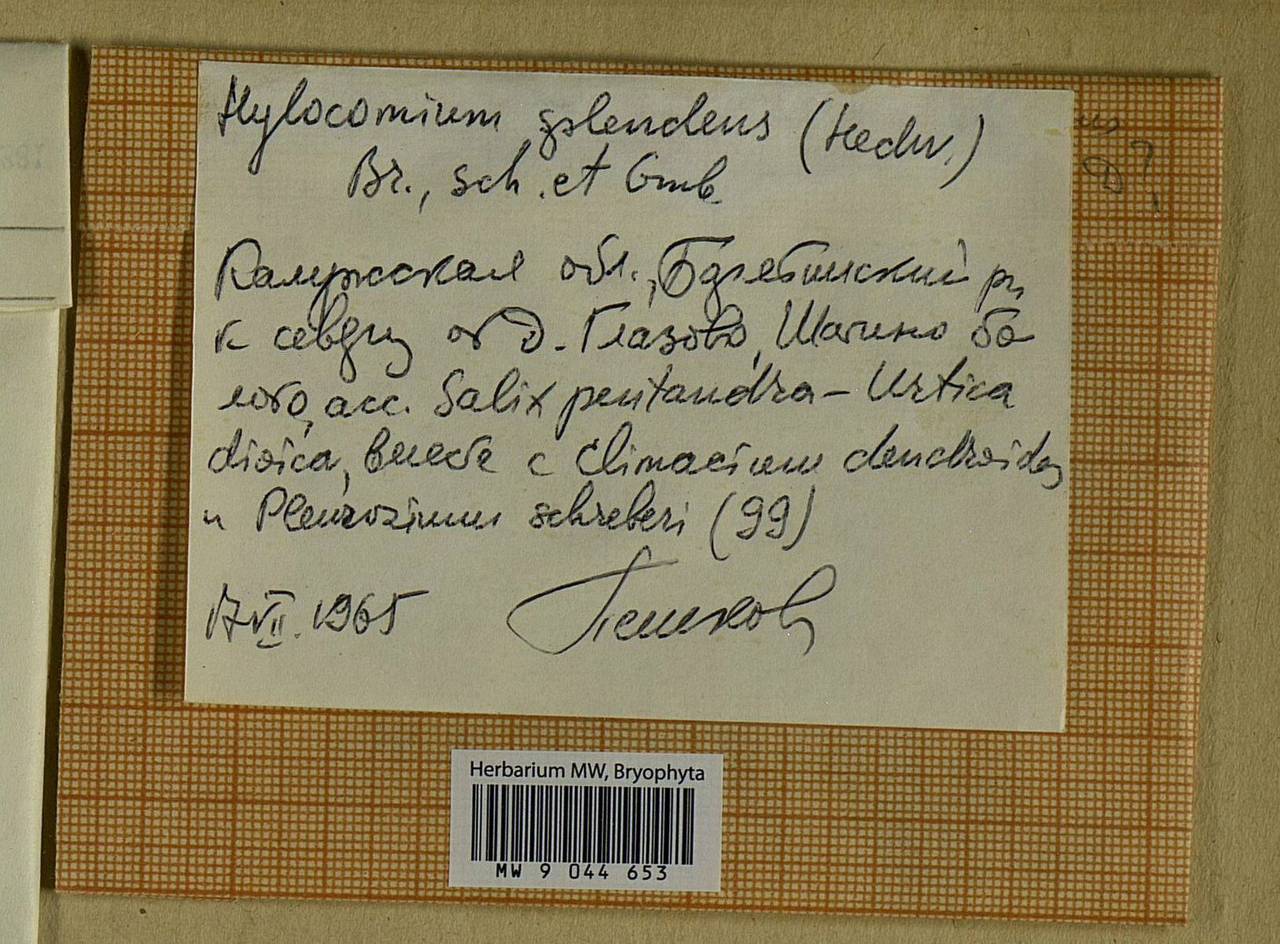 Hylocomium splendens (Hedw.)
Br., Sch. et Gmb
Калужская обл., р-н,
к северу от д. Глазово, Шатино бо
лото, асс. Salix pentandra – Urtica
dioica, вместе с Climacium dendroides
и Pleurozium schreberi (99)
17 VII. 1965
Herbarium MW, Bryophyta
MW 9 044 653